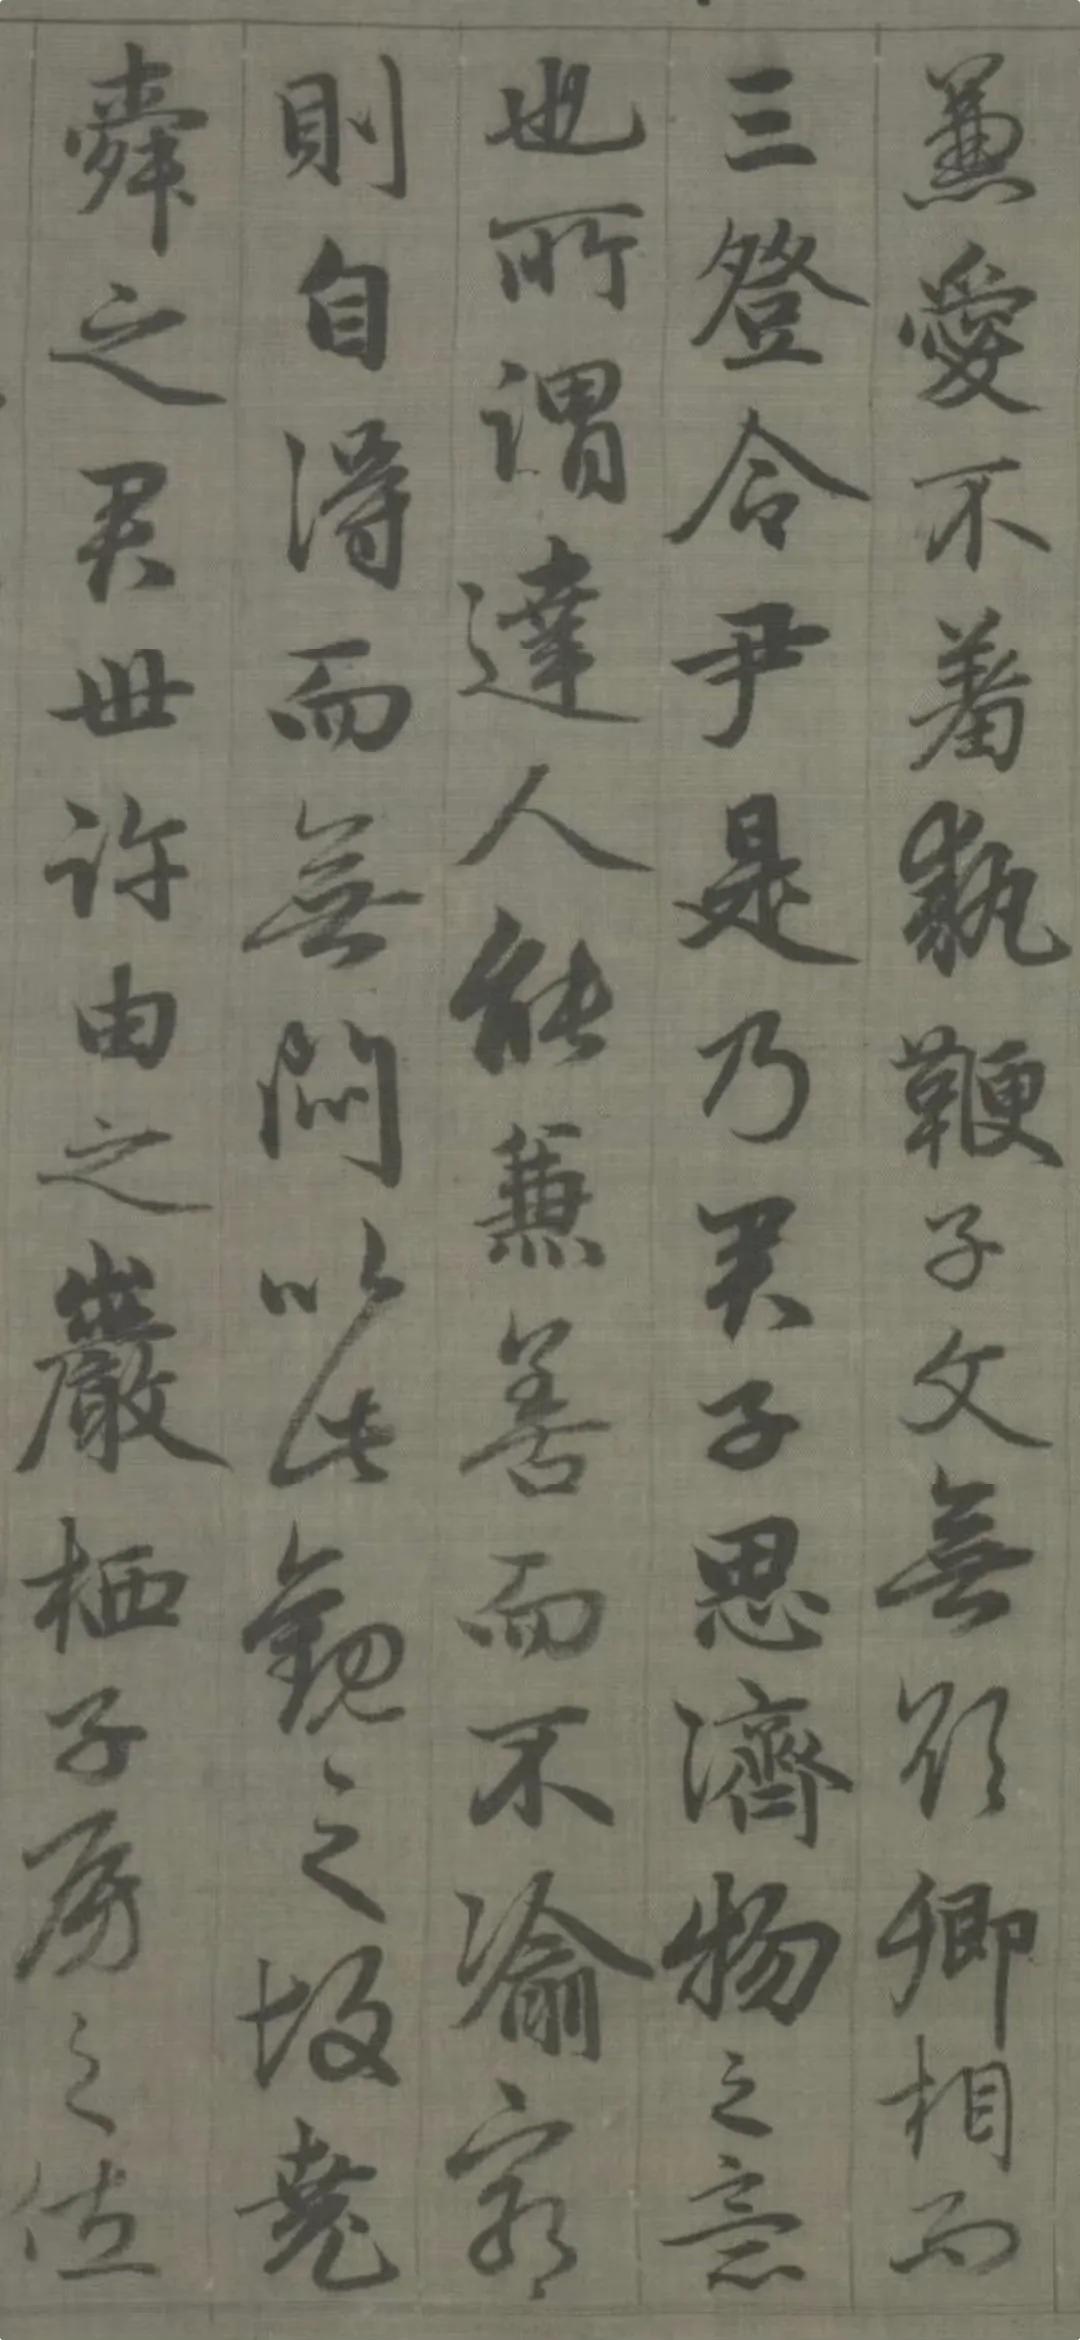 兼愛不羞執鞭子文無欲卿相而
三登令尹是乃君子思濟物之意
也所謂達人能兼善而不渝窮
則自得而無悶以此觀之故堯
舜之君世許由之巖栖子房之佐